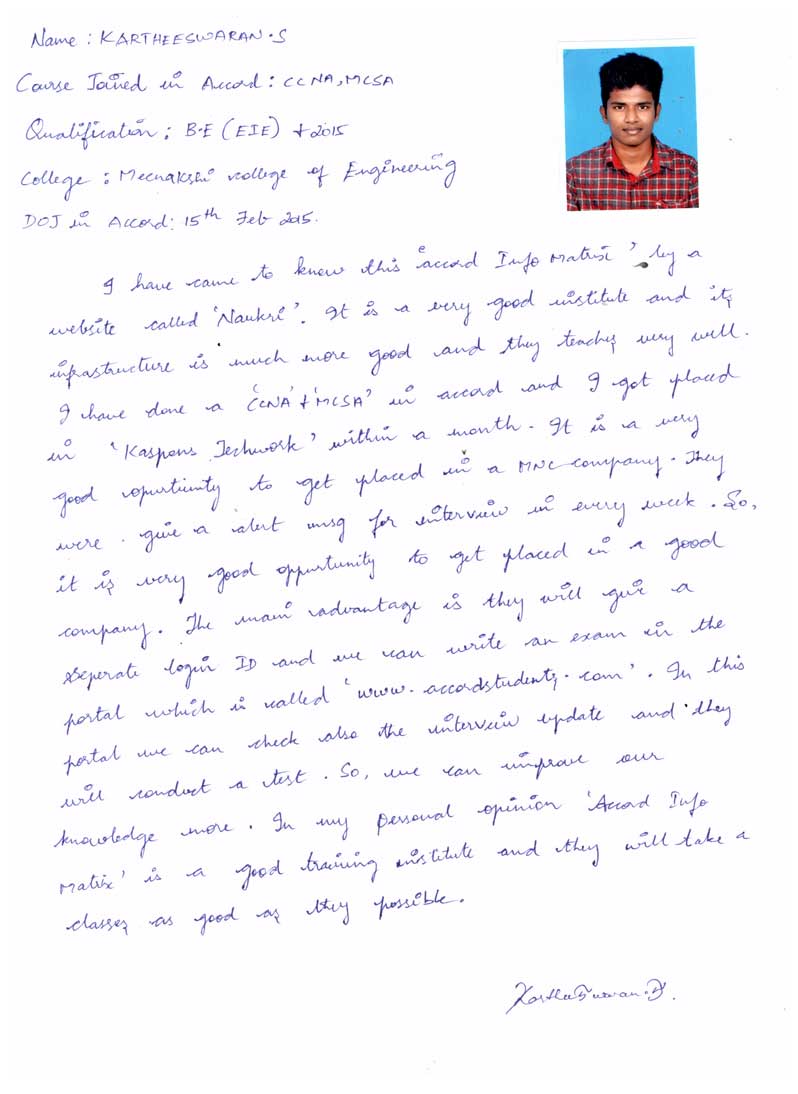 Name : KARTHEESWARAN.S
Course Joined in Accord : CCNA, MCSA
Qualification : B.E (EIE) + 2015
College : Meenakshi college of Engineering
DOJ in Accord: 15th Feb 2015.
I have came to know this 'accord Info Matrix' by a
website called 'Naukri'. It is a very good institute and its
infrastructure is much more good and they teaches very well.
I have done a 'CCNA' + 'MCSA' in accord and I got placed
in 'Kaspons Techwork' within a month. It is a very
good oppurtiunity to get placed in a MNC company. They
were. give a alert msg for interview in every week. So,
it is very good oppurtunity to get placed in a good
company. The main advantage is they will give a
seperate login ID and we can write an exam in the
portal which is called 'www.accordstudents.com'. In this
portal we can check also the interview update and they
will conduct a test. So, we can improve our
knowledge more. In my personal opinion 'Accord Info
Matrix' is a good training institute and they will take a
classes as good as they possible.
Kartheeswaran.S.